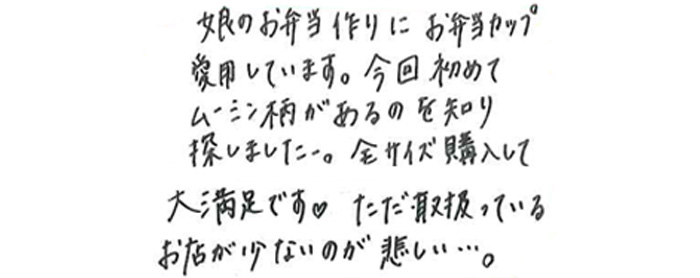 娘のお弁当作りに お弁当カップ
愛用しています。今回 初めて
ムーミン柄があるのを知り
探しました。全サイズ購入して
大満足です♡ ただ取扱っている
お店が少ないのが 悲しい…。